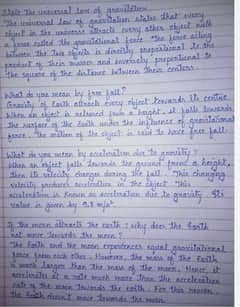 State the universal law of gravitation.
The universal law of gravitation states that every
object in the universe attracts every other object with
a force called the gravitational force. The force acting
between the two objects is directly proportional to the
product of their masses and inversely proportional to
the square of the distance between their centers.
What do you mean by free fall?
Gravity of Earth attracts every object towards its centre
When an object is released from a height, it falls towards
the surface of the Earth under the influence of gravitational
force. The motion of the object is said to have free fall.
What do you mean by acceleration due to gravity?
When an object falls towards the ground from a height,
then its velocity changes during the fall. This changing
velocity produces acceleration in the object. This
acceleration is known as acceleration due to gravity. Its
value is given by 9.8 m/s².
If the moon attracts the earth, why does the Earth
not move towards the moon?
The Earth and the moon experiences equal gravitational
force from each other. However, the mass of the Earth
is much larger than the mass of the moon. Hence, it
accelerates at a rate much more than the acceleration
rate of the moon towards the Earth. For this reason,
the Earth does not move towards the moon.